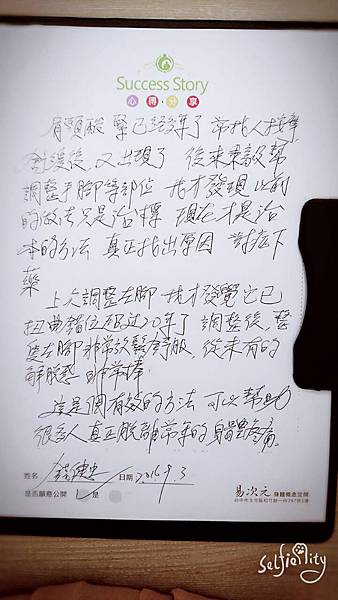 Success Story
心得·分享
肩頸酸 緊已經多年了 常找人按摩
制後, 又出現了 後來 幫
調整手腳等部位 我才發現以前
的 只是治標 現在才是治
本的方法 真正找出原因 對症下
藥
上次調整左腳 我才發覺它已
扭曲錯位超过20年了 調整後, 整
隻左腳非常放鬆舒服, 從來有的
解脫感 非常棒
這是個有效的方法 可以幫助
很多人真正脫離常年的身體疼痛。
簽名: 日期: 2016.9.3
是否願意公開 是
易次元 身體概念空間
selfie city